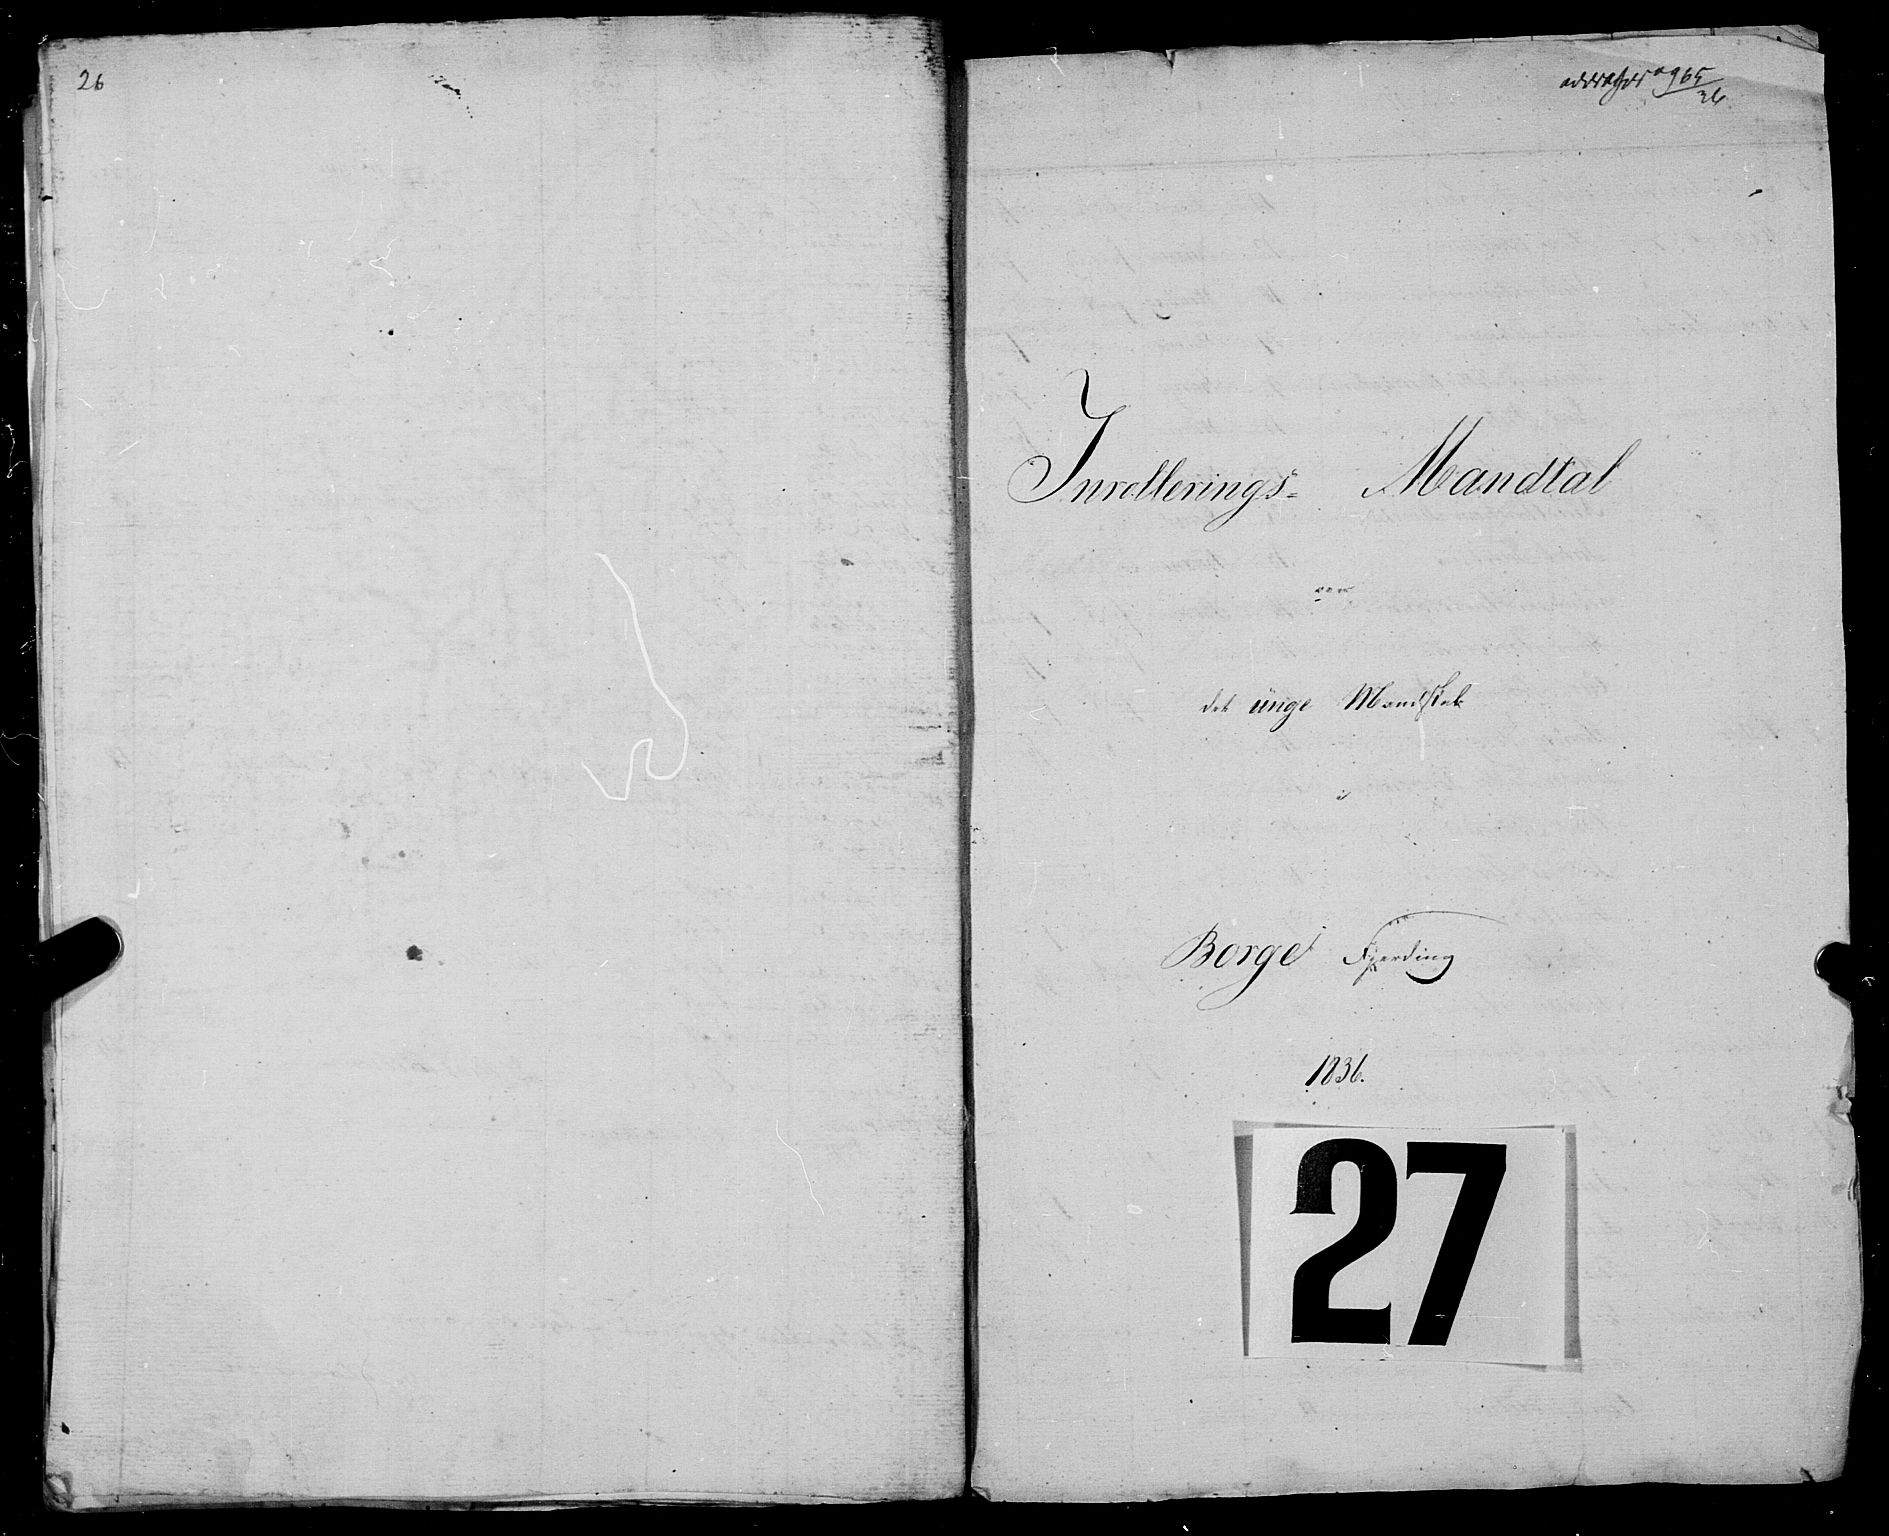 26
965/36
Inrollerings- Mandtal
over
det unge Mandskab
i
Borge Fjerding
1836.
27